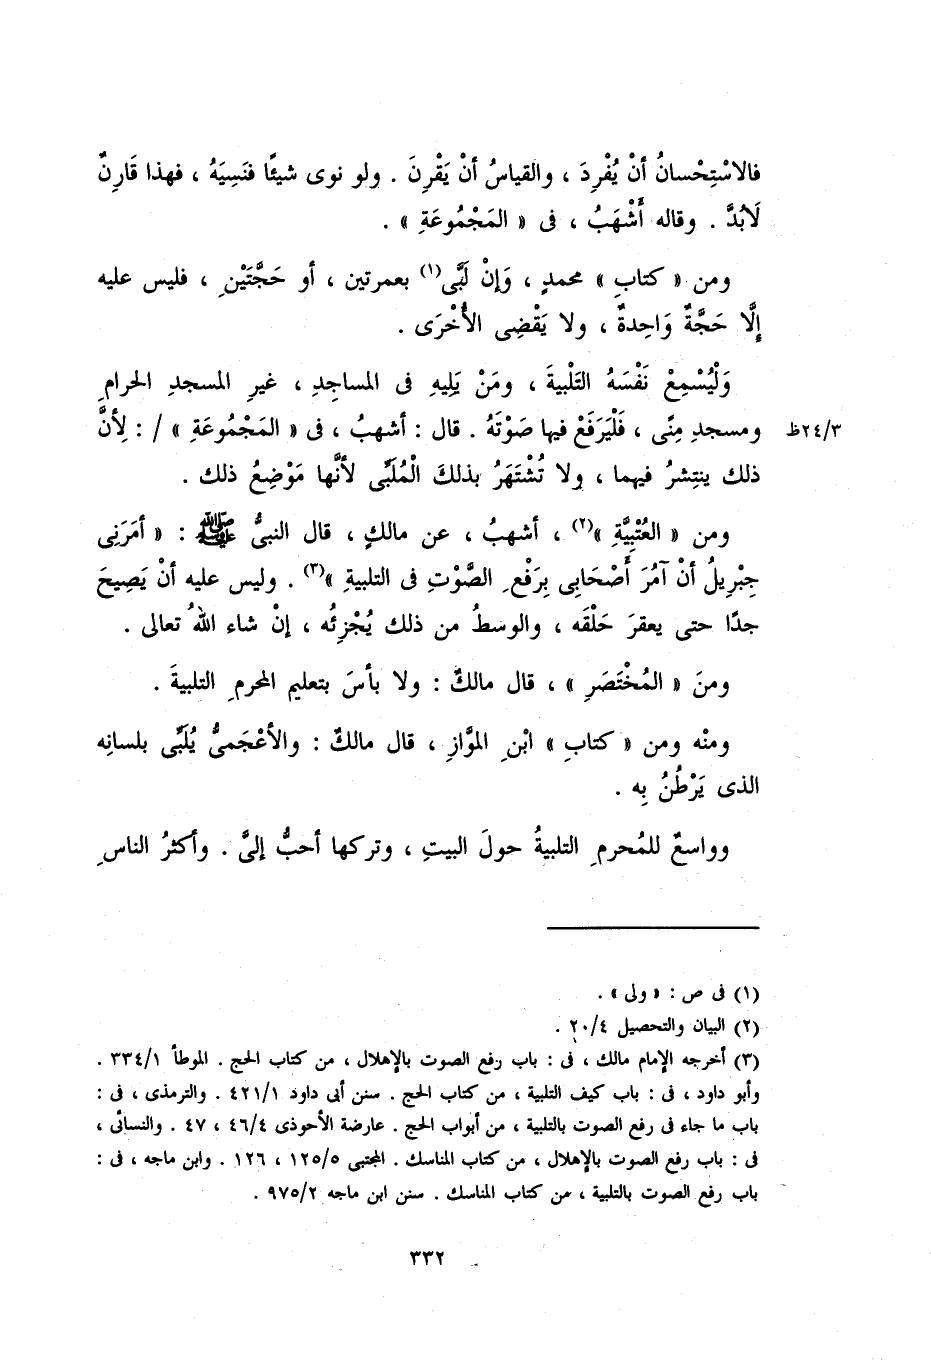 فالاسْتِحْسانُ أنْ يُفْرِدَ ، والقياسُ أنْ يَقْرِنَ . ولو نوى شيئًا فنَسِيَهُ ، فهذا قَارِنٌ
لَابُدَّ . وقاله أَشْهَبُ ، فى « المَجْمُوعَةِ » .
ومن « كتابِ » محمدٍ ، وَإنْ لَبَّى(١) بعمرتين ، أو حَجَّتَيْنِ ، فليس عليه
إلَّا حَجَّةٌ وَاحِدةٌ ، ولا يَقْضِى الأُخْرَى .
وَلْيُسْمِعْ نَفْسَهُ التَلْبيةَ ، ومَنْ يَلِيهِ فى المساجِدِ ، غيرِ المسجدِ الحرامِ
ومسجدِ مِنًى ، فَلْيَرَفَعْ فيها صَوْتَهُ . قال : أشهبُ ، فى « المَجْمُوعَةِ » / : لِأنَّ ٢٤/٣ظ
ذلك ينتِشرُ فيهما ، ولا تُشْتَهَرُ بذلكَ الْمُلَبِّى لأنَّها مَوْضِعُ ذلك .
ومن « العُتْبِيَّةِ »(٢) ، أشهبُ ، عن مالكٍ ، قال النبىُّ ﷺ : « أمَرَنِى
جِبْرِيلُ أنْ آمُرَ أَصْحَابِى بِرَفْعِ الصَّوْتِ فى التلبيةِ »(٣) . وليس عليه أنْ يَصِيحَ
جدًا حتى يعقرَ حَلْقَه ، والوسطُ من ذلك يُجْزِئُه ، إنْ شاء اللهُ تعالى .
ومنَ « المُخْتَصَرِ » ، قال مالكٌ : ولا بأسَ بتعليم المحرمِ التلبيةَ .
ومنْه ومن « كتابِ » ابْنِ الموَّازِ ، قال مالكٌ : والأعْجَمىُّ يُلَبِّى بلسانِه
الذى يَرْطُنُ بِه .
وواسعٌ للمُحرمِ التلبيةُ حولَ البيتِ ، وتركها أحبُّ إلىَّ . وأكثرُ الناسِ
(١) فى ص : « ولى » .
(٢) البيان والتحصيل ٢٠/٤ .
(٣) أخرجه الإمام مالك ، فى : باب رفع الصوت بالإهلال ، من كتاب الحج . الموطأ ٣٣٤/١ .
وأبو داود ، فى : باب كيف التلبية ، من كتاب الحج . سنن أبى داود ٤٢١/١ . والترمذى ، فى :
باب ما جاء فى رفع الصوت بالتلبية ، من أبواب الحج . عارضة الأحوذى ٤٦/٤ ، ٤٧ . والنسائى ،
فى : باب رفع الصوت بالإهلال ، من كتاب المناسك . المجتبى ١٢٥/٥ ، ١٢٦ . وابن ماجه ، فى :
باب رفع الصوت بالتلبية ، من كتاب المناسك . سنن ابن ماجه ٩٧٥/٢ .
٣٣٢